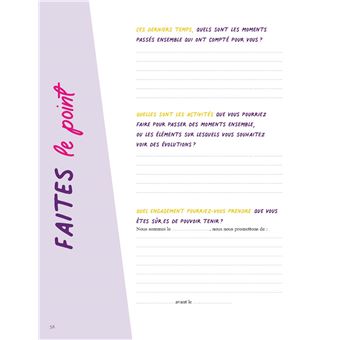 FAITES le point
CES DERNIERS TEMPS, QUELS SONT LES MOMENTS
PASSÉS ENSEMBLE QUI ONT COMPTÉ POUR VOUS ?
QUELLES SONT LES ACTIVITÉS QUE VOUS POURRIEZ
FAIRE POUR PASSER DES MOMENTS ENSEMBLE,
OU LES ÉLÉMENTS SUR LESQUELS VOUS SOUHAITEZ
VOIR DES ÉVOLUTIONS ?
QUEL ENGAGEMENT POURRIEZ-VOUS PRENDRE QUE VOUS
ÊTES SÛR.ES DE POUVOIR TENIR ?
Nous sommes le ..................., nous nous promettons de :
avant le ...................